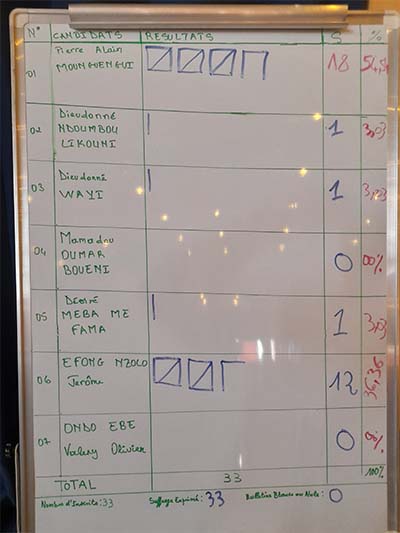 N° CANDIDATS RESULTATS S %
01 Pierre Alain MOUNGUENGUI 18 54,54
02 Dieudonné NDOUMBOU LIKOUNI 1 3,03
03 Dieudonné WAYI 1 3,03
04 Mamadou OUMAR BOUENI 0 00%
05 Désiré MEBA ME FAMA 1 3,03
06 EFONG NZOLO Jerôme 12 36,36
07 ONDO EBE Valery Olivier 0 00%
TOTAL 33 100%
Nombre d'Inscrits: 33 Suffrage Exprimé: 33 Bulletins Blancs ou Nuls: 0